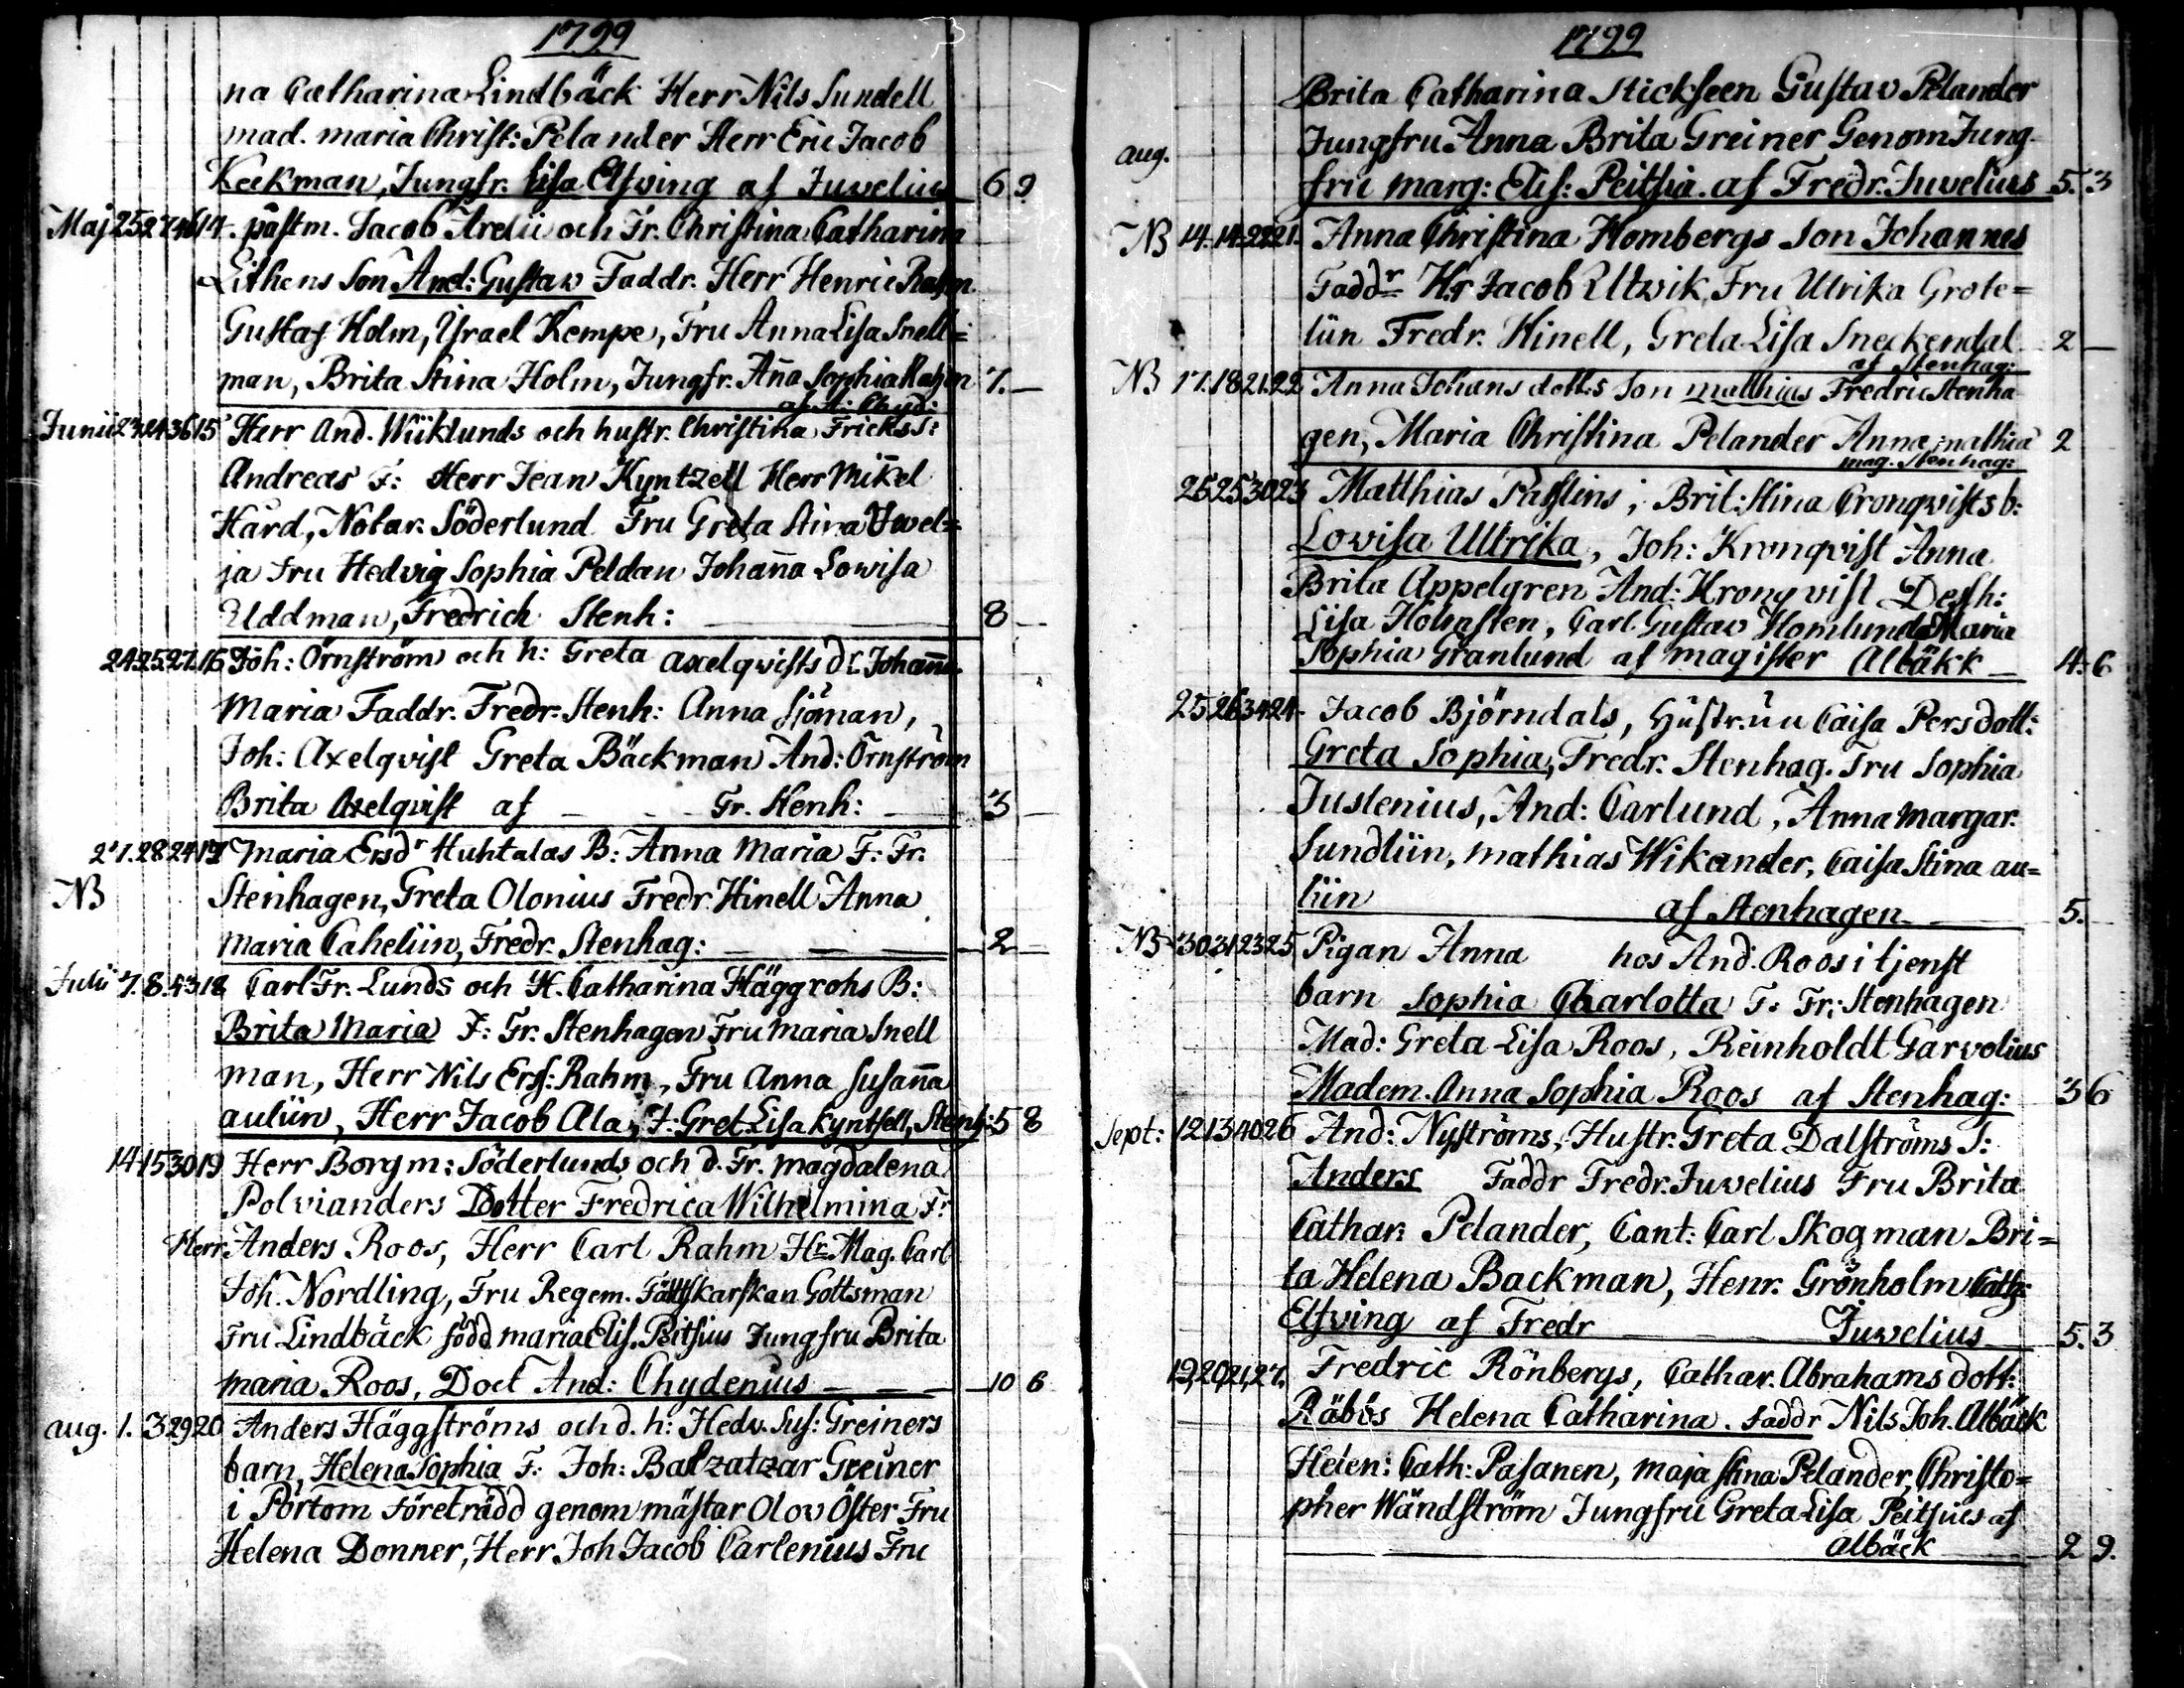 1799
na Catharina Lindbäck Herr Nils Sundell
mad. maria Christ: Pelander Herr Eric Jacob
Keckman, Jungfr. Lisa Elfving af Juvelius 6 9
Maj 25 27 46 14. påstm. Jacob Arelii och Fr. Christina Catharina
Lithens Son And: Gustav Faddr. Herr Henric Rahm
Gustaf Holm, Ysrael Kempe, Fru Anna Lisa Snell=
man, Brita Stina Holm, Jungfr. Aña Sophia Rahm 7. —
af A: Chyd:
Junii 23 24 36 15 Herr And. Wiiklunds och hustr. Christina Fricks S:
Andreas F: Herr Jean Kyntzell Herr Mikel
Hård, Notar. Söderlund Fru Greta Stina Uwel=
ja Fru Hedvig Sophia Peldan Johaña Lowisa
Uddman, Fredrich Stenh: — 8 —
24 25 27 16 Joh: Örnström och h: Greta axelqvists d. Johaña
Maria Faddr. Fredr. Stenh: Anna Sjöman,
Joh: Axelqvist Greta Bäckman And: Örnström
Brita Axelqvist af — Fr. Stenh: — 3 —
27. 28 24 17 Maria Ersdr Huhtalas B: Anna Maria F: Fr.
NB Stenhagen, Greta Olonius Fredr. Hinell Anna
Maria Caheliin, Fredr. Stenhag: — 2 —
Julii 7. 8. 43 18 Carl Fr. Lunds och H. Catharina Häggrohs B:
Brita Maria F: Fr. Stenhagen Fru Maria Snell
man, Herr Nils Ers: Rahm, Fru Anna Susaña
auliin, Herr Jacob Ala, F: Gret. Lisa Kyntsell, Stenh: 5 8
14 15 30 19 Herr Borgm: Söderlunds och d. Fr. Magdalena
Polvianders Dotter Fredrica Wilhelmina F:
Herr Anders Roos, Herr Carl Rahm Hr Mag. Carl
Joh. Nordling, Fru Regem. Fältskarskan Gottsman
Fru Lindbäck född maria Elis. Peitsius Jungfru Brita
maria Roos, Doct And: Chydenius — 10 6
aug. 1. 3 29 20 Anders Häggströms och d. h: Hedv. Sus: Greiners
barn, Helena Sophia F: Joh: Baltzatzar Greiner
i Pörtom företrädd genom mästar Olov Öster Fru
Helena Donner, Herr Joh Jacob Carlenius Fru
1799
Brita Catharina Stickseen Gustav Pelander
Jungfru Anna Brita Greiner Genom Jung-
aug. fru marg: Elis: Peitsia. af Fredr. Juvelius 5. 3
NB 14. 14. 22 21. Anna Christina Hombergs Son Johannes
Faddr Hr Jacob Utwik, Fru Ulrika Grote=
liin Fredr. Hinell, Greta Lisa Sneckendal 2 —
af Stenhag:
NB 17. 18 21. 22 Anna Johans dotts Son mathias Fredric Stenha
gen, Maria Christina Pelander Anna mathia 2
mag. Stenhag:
25 25 30 23 Matthias Passlins, Brit: Stina Cronqvists b:
Lowisa Ullrika, Joh: Kronqvist Anna
Brita Appelgren And: Kronqvist Desh:
Lisa Holmsten, Carl Gustav Homlund Maria
Sophia Granlund af magister Albäkk — 4. 6
25 26 34 24 Jacob Björndals, Hustruu Caisa Persdott:
Greta Sophia, Fredr. Stenhag. Fru Sophia
Juslenius, And: Carlund, Anna Margar.
Sundliin, mathias Wikander, Caisa Stina au=
liin af Stenhagen — 5.
NB 30 31 23 25 Pigan Anna hos And. Roos i tjenst
barn Sophia Charlotta F: Fr: Stenhagen
Mad: Greta Lisa Roos, Reinholdt Garvolius
Madem. Anna Sophia Roos af Stenhag: 3 6
Sept: 12 13 40 26 And: Nyströms, Hustr. Greta Dalströms S:
Anders Faddr Fredr. Juvelius Fru Brita
Cathar: Pelander, Cant: Carl Skogman Bri=
ta Helena Backman, Henr. Grönholm Cath:
Elfving af Fredr — Juvelius 5. 3
19, 20, 21, 27. Fredric Rönbergs, Cathar. Abrahams dott:
Räbös Helena Catharina. Faddr Nils Joh. Albäck
Helen: Cath: Pasanen, maja stina Pelander, Christo=
pher Wändström Jungfru Greta Lisa Peitsius af
albäck — 2 9.